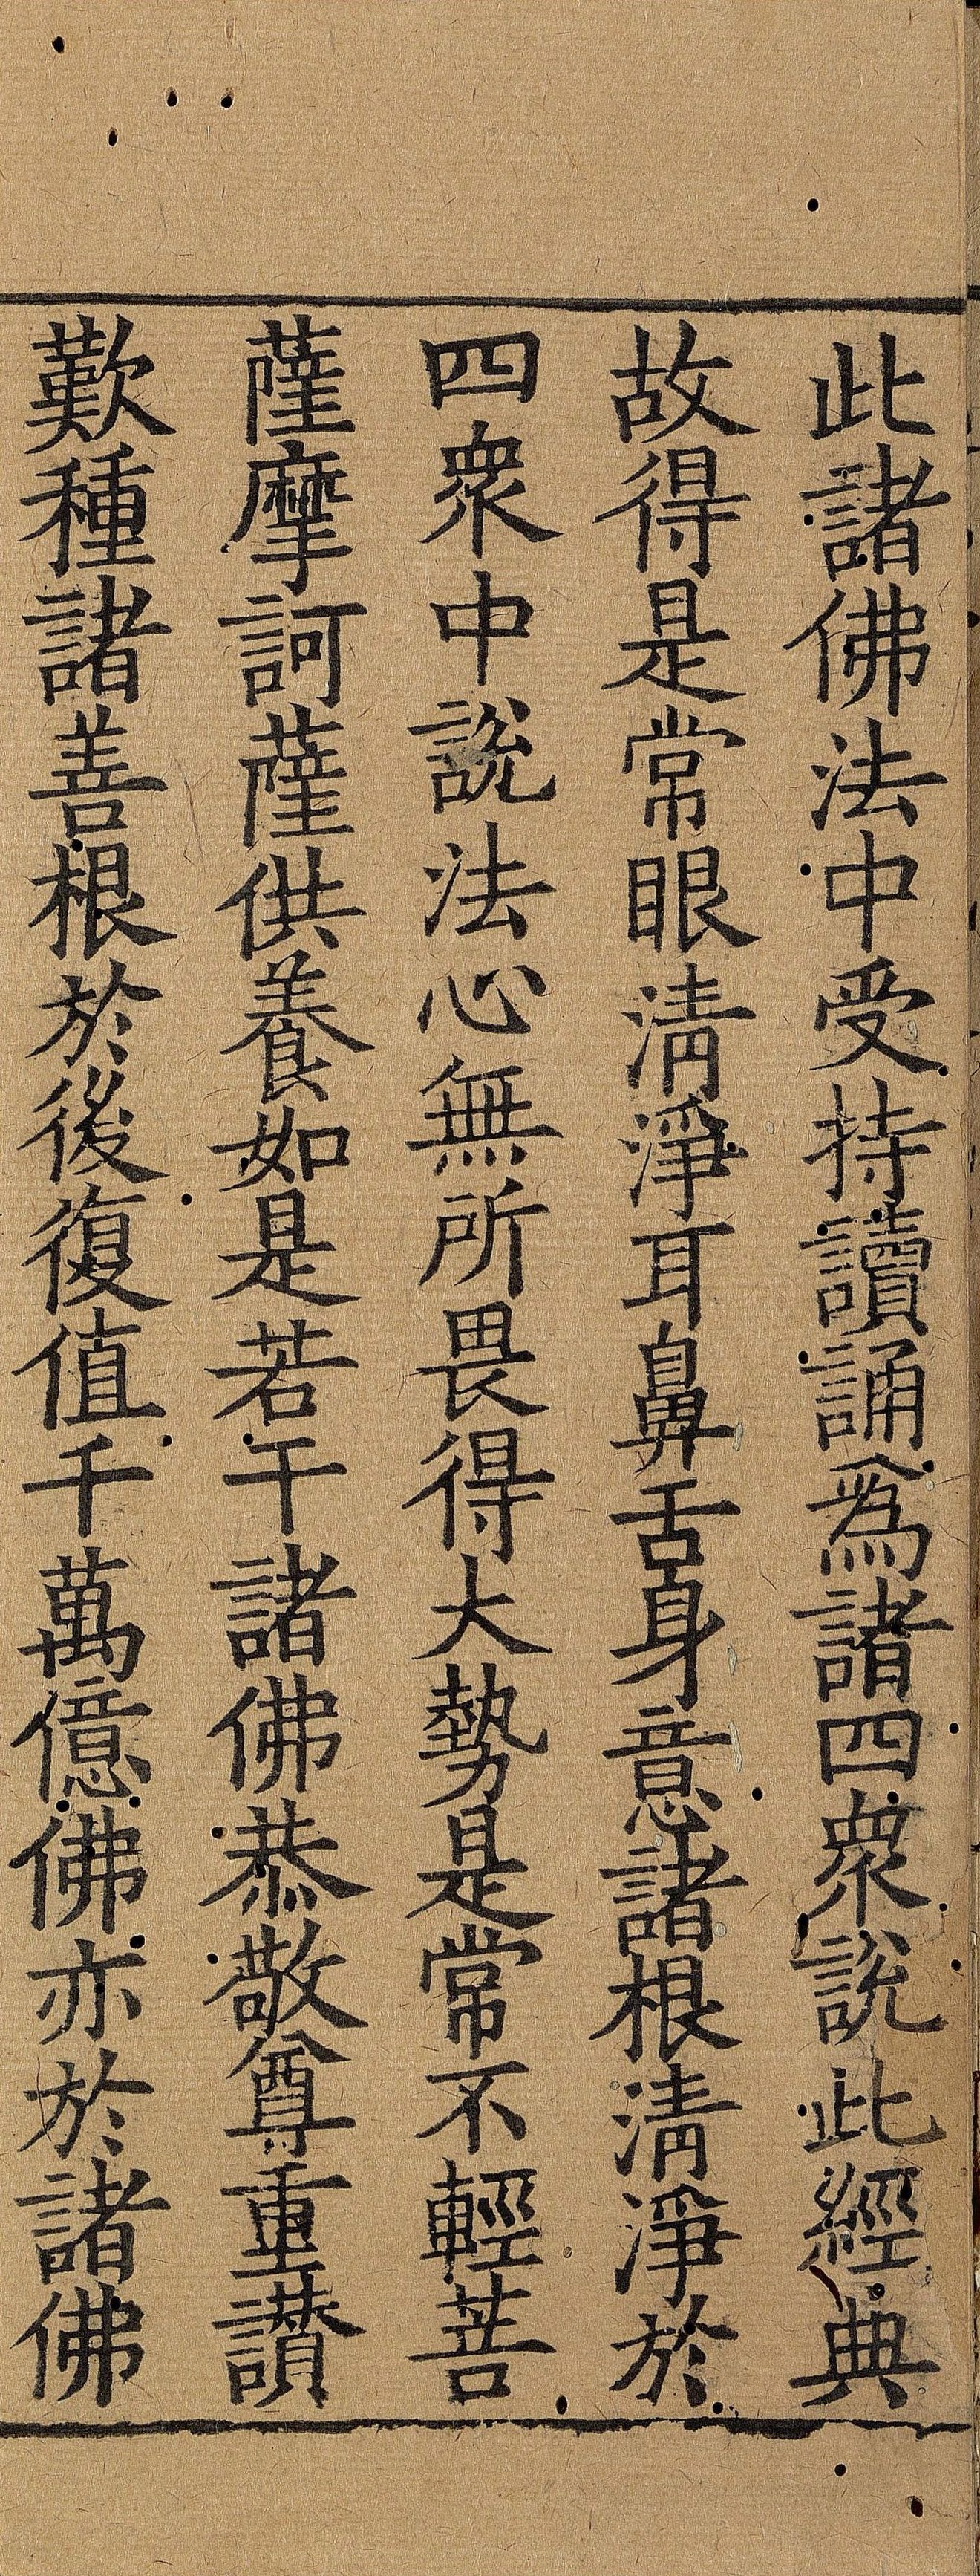 此諸佛法中受持讀誦為諸四衆說此經典
故得是常眼清淨耳鼻舌身意諸根清淨於
四衆中說法心無所畏得大勢是常不輕菩
薩摩訶薩供養如是若干諸佛恭敬尊重讃
歎種諸善根於後復值千萬億佛亦於諸佛